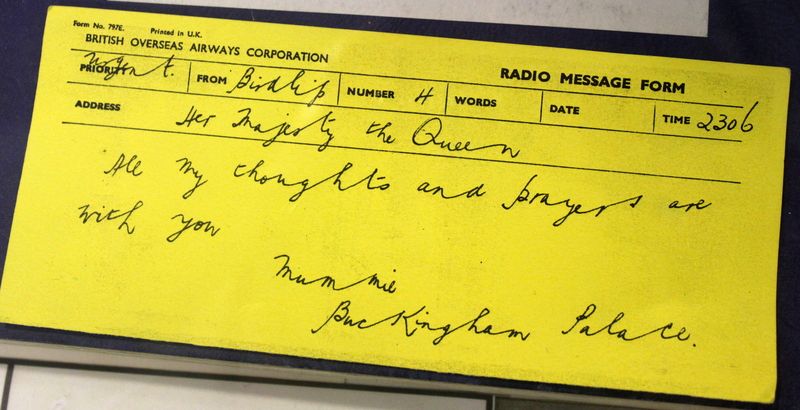 Form No. 797E. Printed in U.K.
BRITISH OVERSEAS AIRWAYS CORPORATION
RADIO MESSAGE FORM
PRIORITY Urgent. FROM Birdlip NUMBER 4 WORDS DATE TIME 2306
ADDRESS Her Majesty the Queen
All my thoughts and prayers are
with you
Mummie
Buckingham Palace.